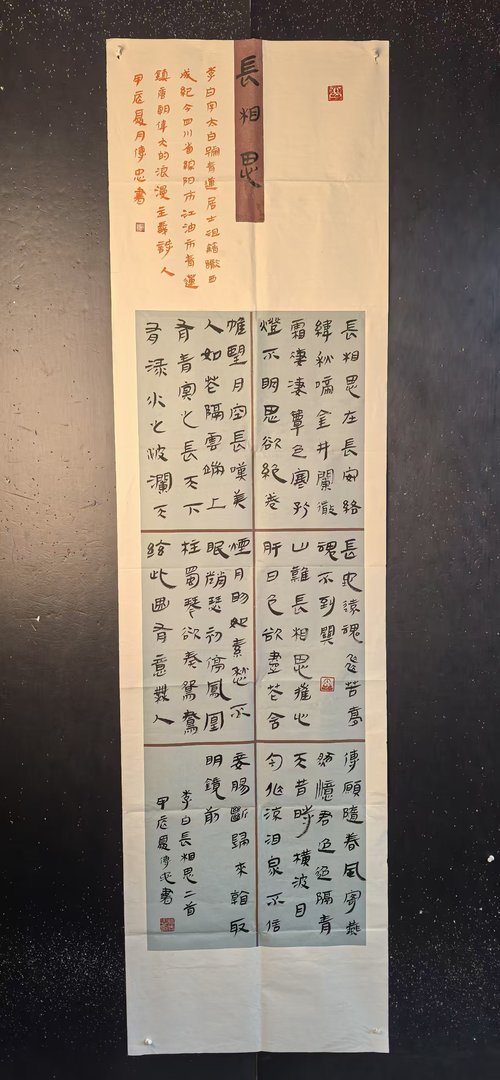 長相思
李白字太白號青蓮居士祖籍隴西
成紀今四川省綿陽市江油市青蓮
鎮唐朝偉大的浪漫主義詩人
甲辰夏月傳忠書
長相思在長安絡
緯秋啼金井闌微
霜淒淒簟色寒孤
燈不明思欲絕卷
帷望月空長嘆美
人如花隔雲端上
有青冥之長天下
有淥水之波瀾天
長地遠魂飛苦夢
魂不到關
山難長相思摧心
肝日色欲盡花含
煙月明如素愁不
眠趙瑟初停鳳凰
柱蜀琴欲奏鴛鴦
絃此曲有意無人
傳願隨春風寄燕
然憶君迢迢隔青
天昔時橫波目
今作流泪泉不信
妾腸斷歸來看取
明鏡前
李白長相思二首
甲辰夏傳忠書